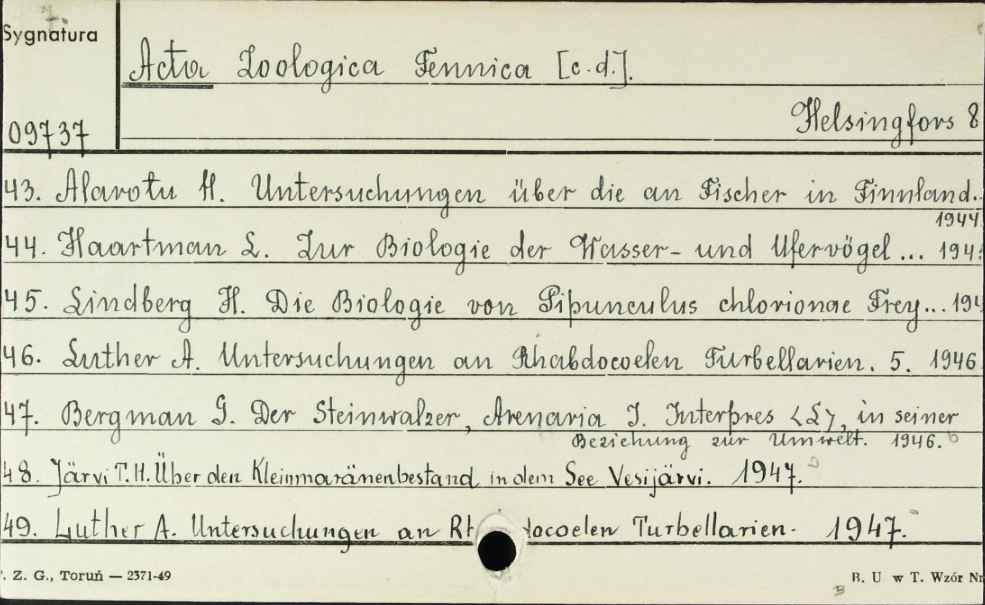 Sygnatura
Acta Zoologica Fennica [c.d.].
Helsingfors 8
09737
43. Alarotu H. Untersuchungen über die an Fischer in Finnland..
1944
44. Haartman L. Zur Biologie der Wasser- und Ufervögel ... 194
45. Lindberg H. Die Biologie von Pipunculus chlorionae Frey... 194
46. Luther A. Untersuchungen an Rhabdocoelen Turbellarien. 5. 1946
47. Bergman G. Der Steinwalzer, Arenaria J. Interpres <L>, in seiner
Beziehung zur Umwelt. 1946.
48. Järvi T.H. Über den Kleinmaränenbestand in dem See Vesijärvi. 1947.
49. Luther A. Untersuchungen an Rh docoelen Turbellarien. 1947.
. Z. G., Toruń — 2371-49
B. U w T. Wzór Nr